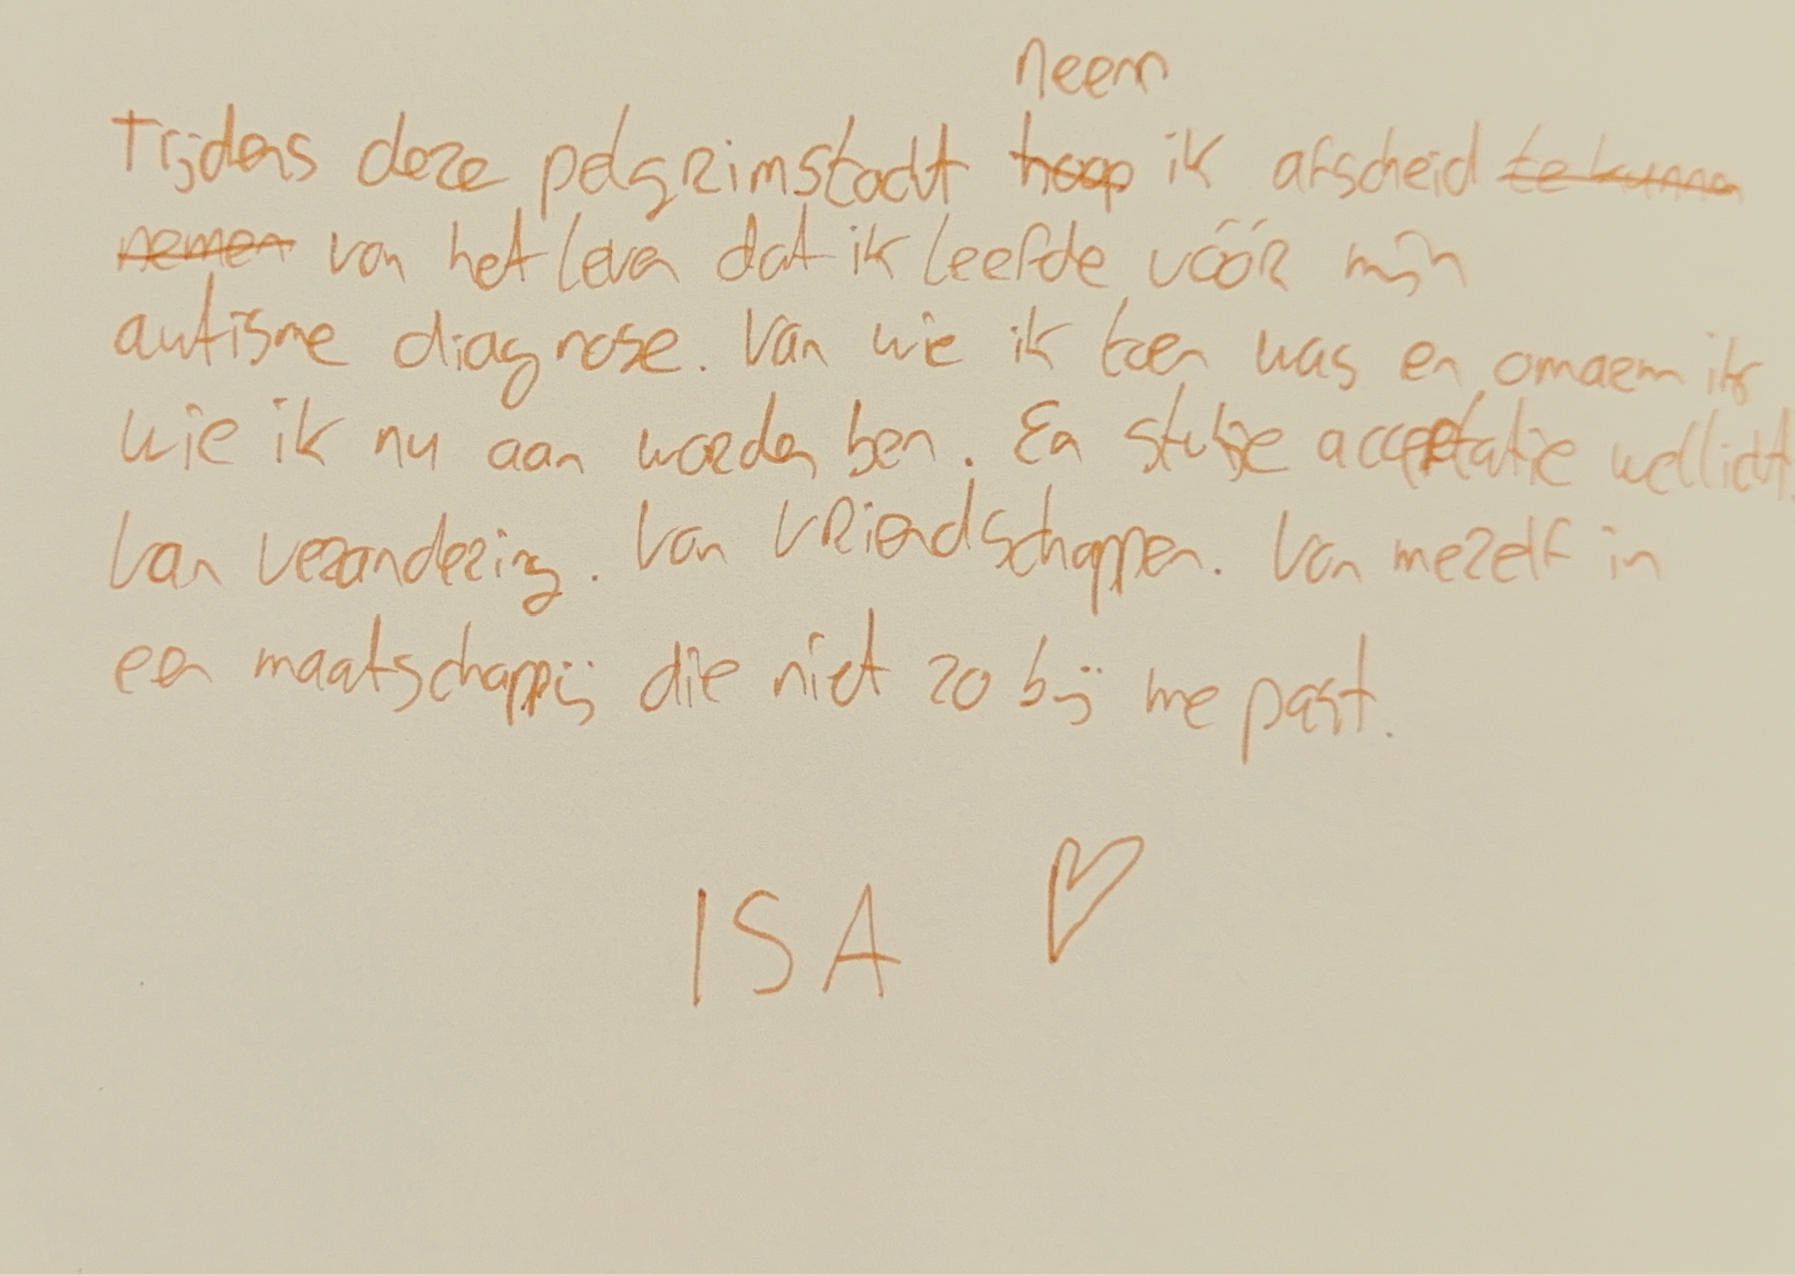 neem
Tijdens deze pelgrimstocht hoop ik afscheid te kunnen
nemen van het leven dat ik leefde vóór mijn
autisme diagnose. Van wie ik toen was en omarm ik
wie ik nu aan worden ben. En stukje acceptatie wellicht.
Van verandering. Van vriendschappen. Van mezelf in
een maatschappij die niet zo bij me past.
ISA